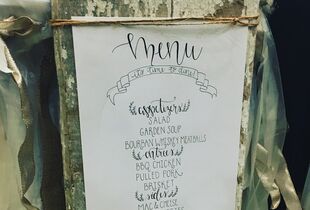 Menu
appetizers
SALAD
GARDEN SOUP
BOURBAN WHISKEY MEATBALLS
entrées
BBQ CHICKEN
PULLED PORK
BRISKET
sides
MAC & CHEESE